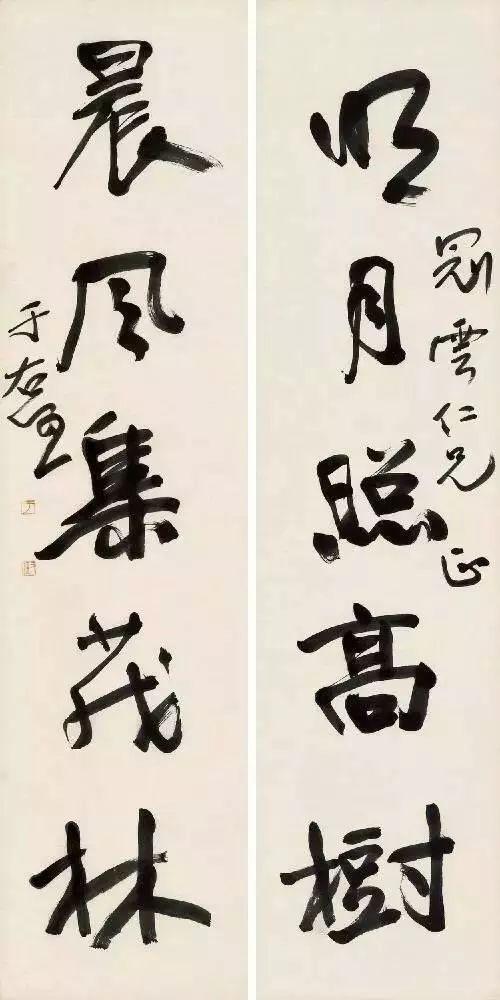 明月照高樹
冠雲仁兄 正
晨风集茂林
于右任